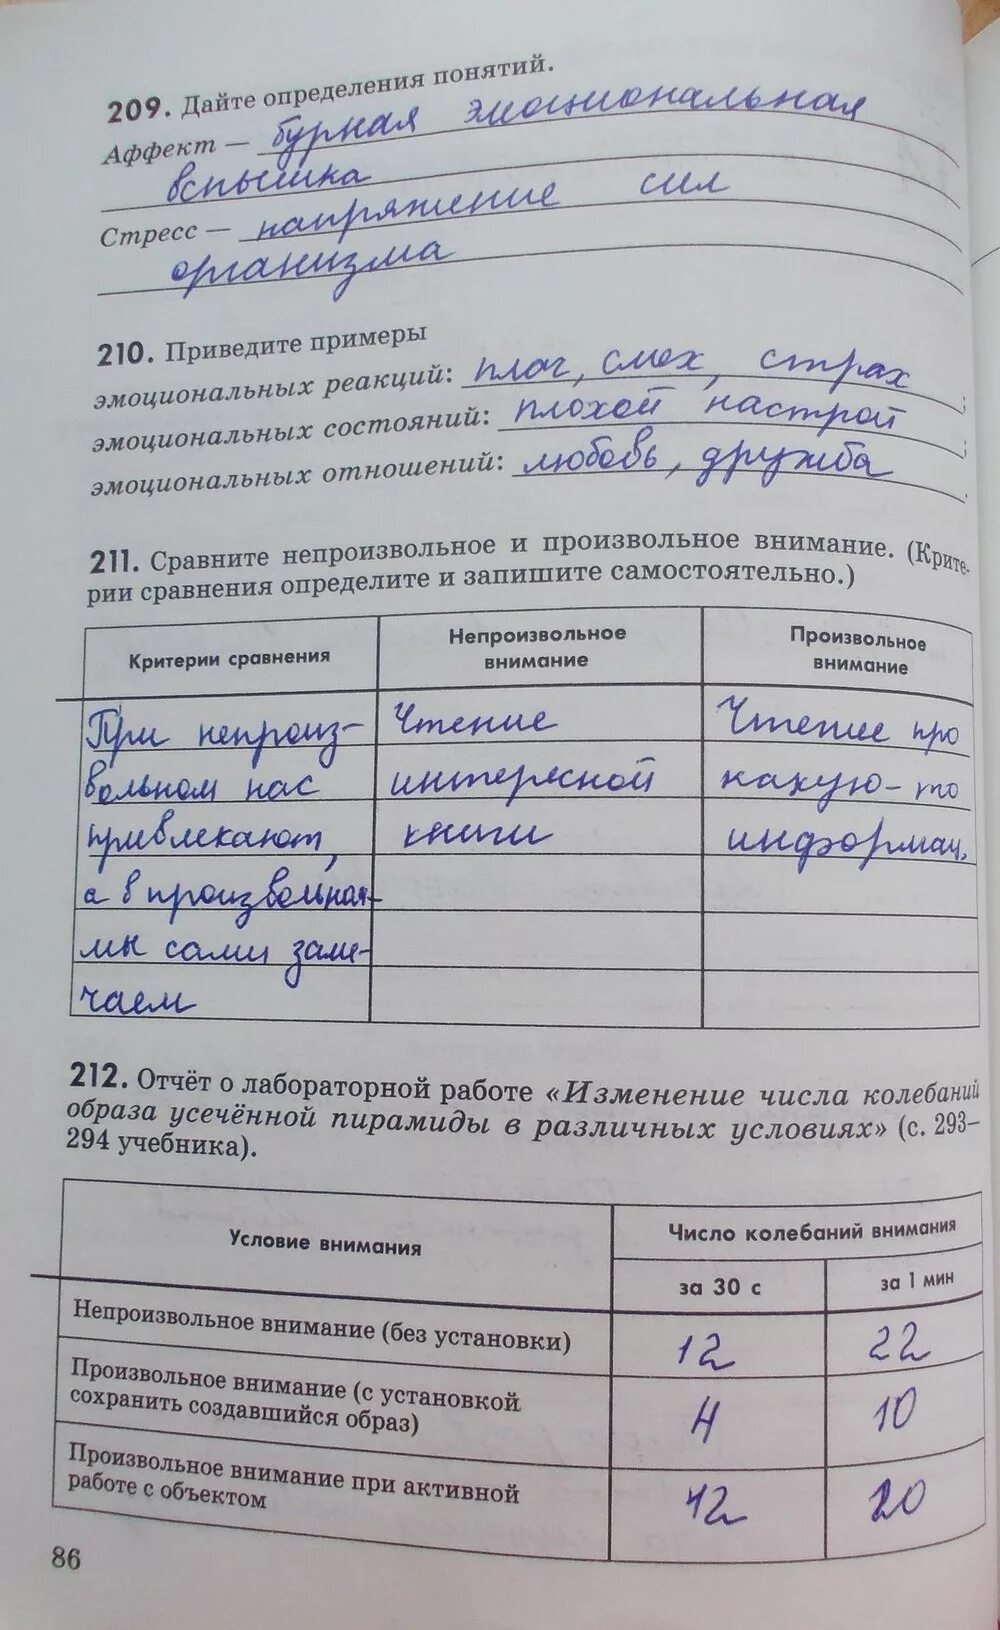 209. Дайте определения понятий.
Аффект — бурная эмоциональная
вспышка
Стресс — напряжение сил
организма
210. Приведите примеры
эмоциональных реакций: плач, смех, страх;
эмоциональных состояний: плохой настрой;
эмоциональных отношений: любовь, дружба.
211. Сравните непроизвольное и произвольное внимание. (Крите-
рии сравнения определите и запишите самостоятельно.)
Критерии сравнения
Непроизвольное
внимание
Произвольное
внимание
При непроиз-
вольном нас
привлекают,
а в произвольная-
мы сами заме-
чаем
Чтение
интересной
книги
Чтение про
какую-то
информац.
212. Отчёт о лабораторной работе «Изменение числа колебаний
образа усечённой пирамиды в различных условиях» (с. 293–
294 учебника).
Условие внимания
Число колебаний внимания
за 30 с
за 1 мин
Непроизвольное внимание (без установки)
12
22
Произвольное внимание (с установкой
сохранить создавшийся образ)
4
10
Произвольное внимание при активной
работе с объектом
12
20
86